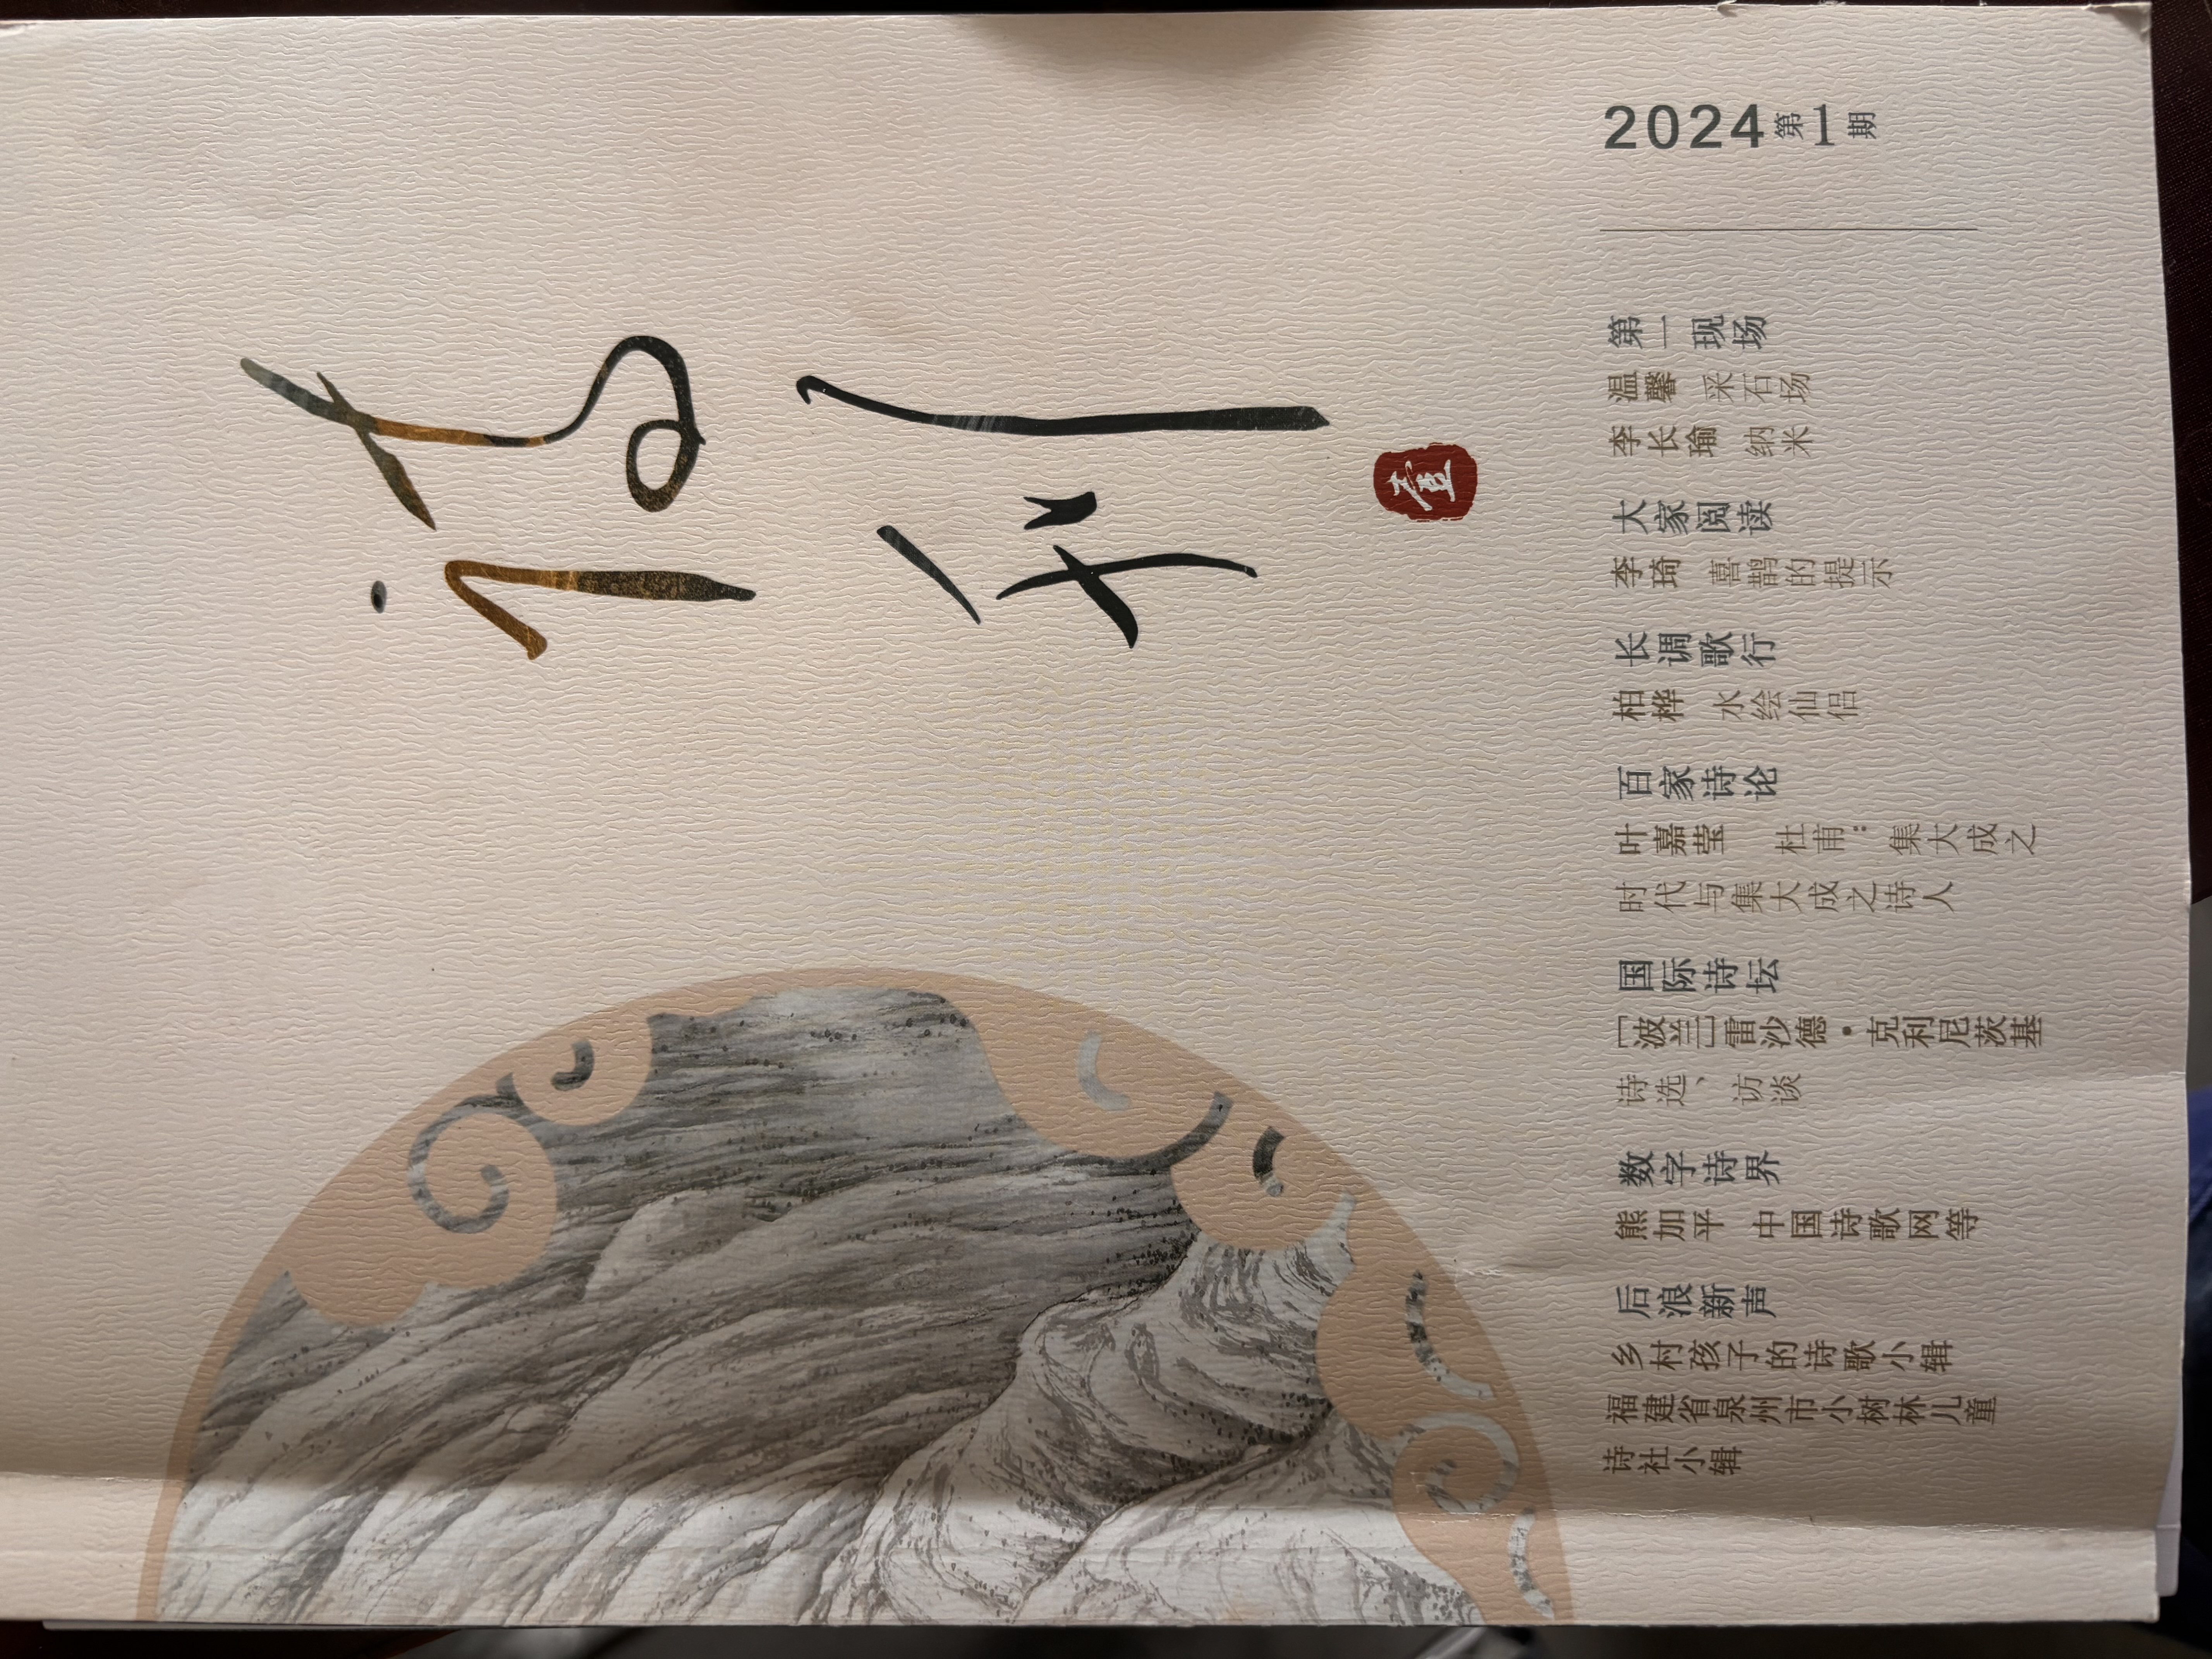 诗刊
2024第1期
第一现场
温馨 采石场
李长瑜 纳米
大家阅读
李琦 喜鹊的提示
长调歌行
柏桦 水绘仙侣
百家诗论
叶嘉莹 杜甫：集大成之
时代与集大成之诗人
国际诗坛
[波兰]雷沙德·克利尼茨基
诗选、访谈
数字诗界
熊加平 中国诗歌网等
后浪新声
乡村孩子的诗歌小辑
福建省泉州市小树林儿童
诗社小辑